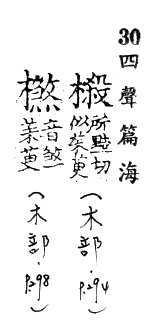 30四聲篇海
樧所黠切
似茱萸
(木部.p.294)
音煞
茱萸
(木部.p.298)